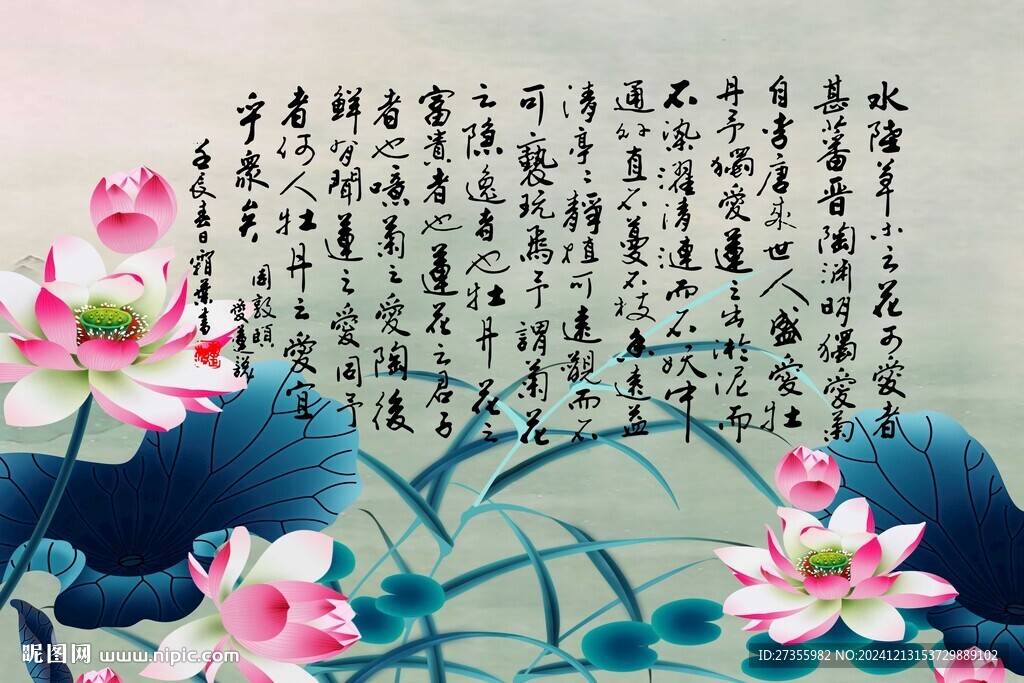 水陸草木之花可愛者
甚蕃晉陶淵明獨愛菊
自李唐来世人盛愛牡
丹予獨愛蓮之出淤泥而
不染濯清漣而不妖中
通外直不蔓不枝香遠益
清亭亭靜植可遠觀而不
可褻玩焉予謂菊花
之隐逸者也牡丹花之
富貴者也蓮花之君子
者也噫菊之愛陶後
鮮有聞蓮之愛同予
者何人牡丹之愛宜
乎衆矣
周敦頤
愛蓮說
春日
書
昵图网 www.nipic.com
ID:27355982 NO:20241213153729889102